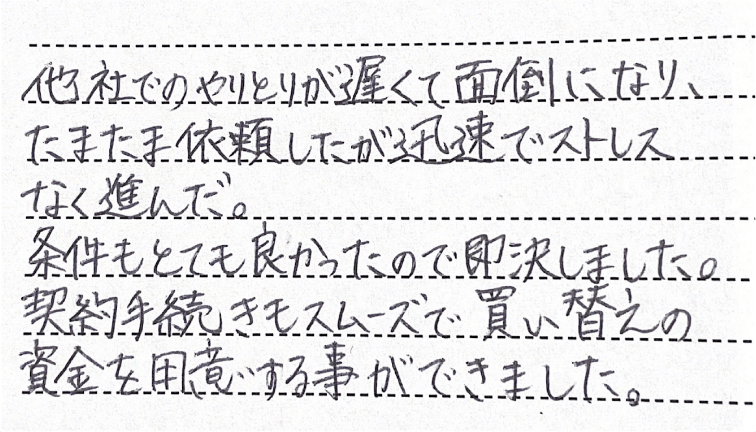 他社でのやりとりが遅くて面倒になり、
たまたま依頼したが迅速でストレス
なく進んだ。
条件もとても良かったので即決しました。
契約手続きもスムーズで買い替えの
資金を用意する事ができました。